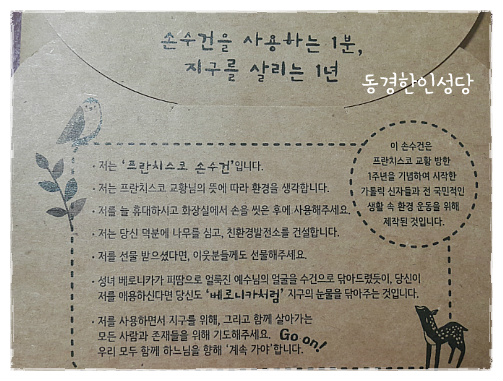 손수건을 사용하는 1분,
지구를 살리는 1년
동경한인성당
이 손수건은
프란치스코 교황 방한
1주년을 기념하여 시작한
가톨릭 신자들과 전 국민적인
생활 속 환경 운동을 위해
제작된 것입니다.
· 저는 '프란치스코 손수건'입니다.
· 저는 프란치스코 교황님의 뜻에 따라 환경을 생각합니다.
· 저를 늘 휴대하시고 화장실에서 손을 씻은 후에 사용해주세요.
· 저는 당신 덕분에 나무를 심고, 친환경발전소를 건설합니다.
· 저를 선물 받으셨다면, 이웃분들께도 선물해주세요.
· 성녀 베로니카가 피땀으로 얼룩진 예수님의 얼굴을 수건으로 닦아드렸듯이, 당신이
저를 애용하신다면 당신도 '베로니카처럼' 지구의 눈물을 닦아주는 것입니다.
· 저를 사용하면서 지구를 위해, 그리고 함께 살아가는
모든 사람과 존재들을 위해 기도해주세요. Go on!
우리 모두 함께 하느님을 향해 '계속 가야'합니다.